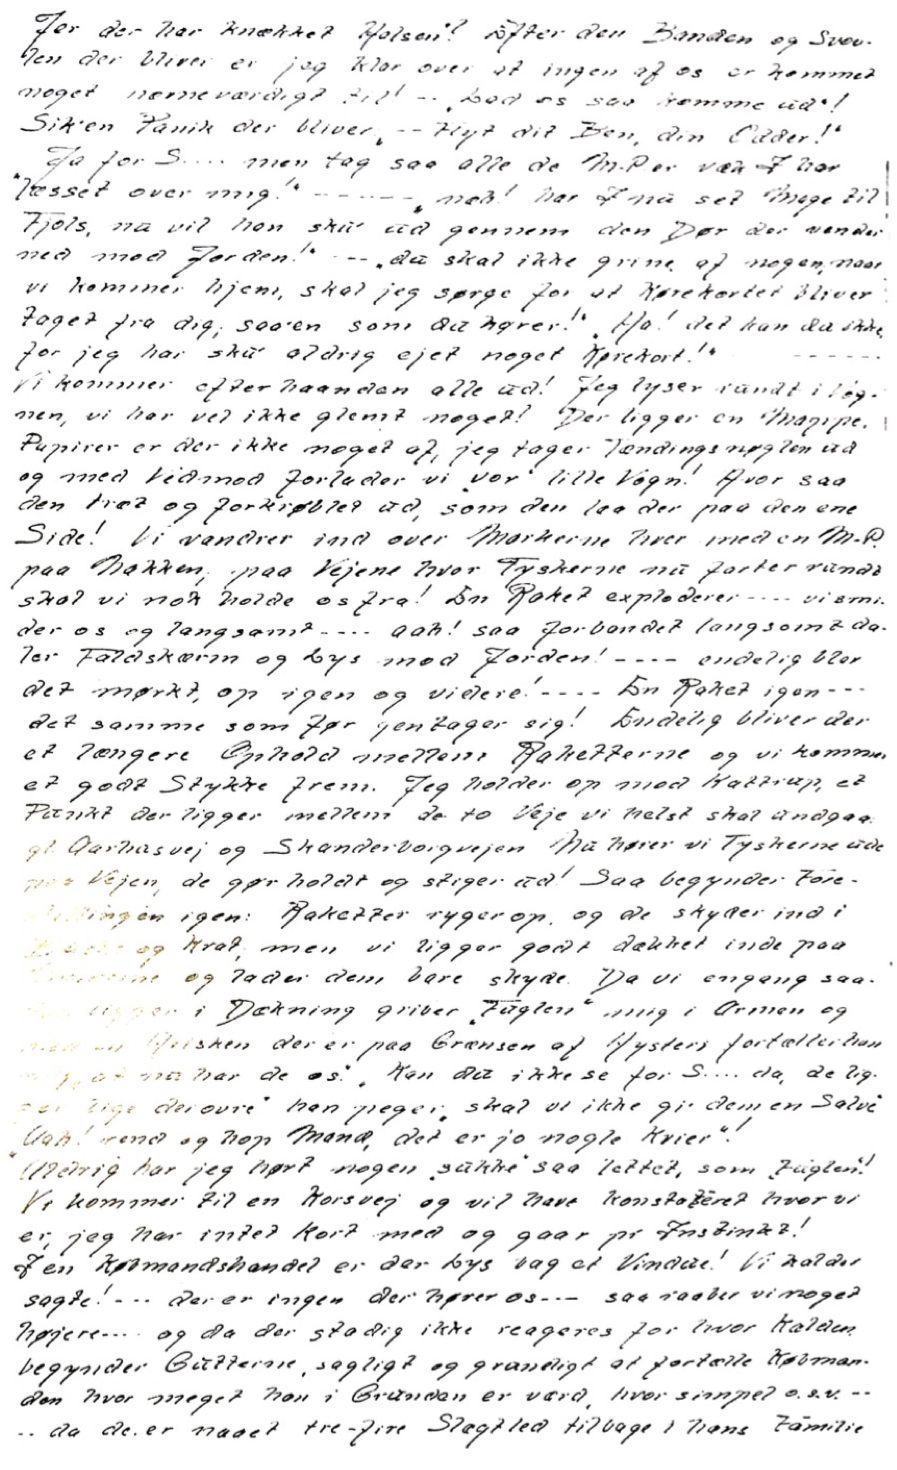 for der har knækket Halsen"! Efter den Banden og Svov-
len der bliver er jeg klar over at ingen af os er kommet
noget nævneværdigt til! -- "Lad os saa komme ud"!
Sik'en Panik der bliver, -- Flyt dit Ben, din Odder!"
Ja for S.... men tag saa alle de M.P.er væk I har
læsset over mig!" ------ "næh! har I nu set Mage til
Fjols, nu vil han sku' ud gennem den Dør der vender
ned mod Jorden!" --- "du skal ikke grine af nogen, naar
vi kommer hjem, skal jeg sørge for at Kørekortet bliver
taget fra dig, saa'en som du kører!" "Ha! det kan du ikke,
for jeg har sku' aldrig ejet noget Kørekort!" ------
Vi kommer efterhaanden alle ud! Jeg lyser rundt i Vog-
nen, vi har vel ikke glemt noget? Der ligger en
Papirer er der ikke noget af, jeg tager Tændingsnøglen ud
og med Vedmod forlader vi "vor" lille Vogn! Hvor saa
den træt og forkrøblet ud, som den laa der paa den ene
Side! Vi vandrer ind over Markerne hver med en M.P.
paa Nakken, paa Vejene hvor Tyskerne nu farter rundt
skal vi nok holde os fra! En Raket exploderer ---- vi smi-
der os og langsomt ---- aah! saa forbandet langsomt da-
ler Faldskærm og Lys mod Jorden! ---- endelig blev
det mørkt, op igen og videre! ---- En Raket igen ---
det samme som før gentager sig! Endelig bliver der
et længere Ophold mellem Raketterne og vi kommer
et godt Stykke frem. Jeg holder op mod Kattrup, et
Punkt der ligger mellem de to Veje vi helst skal undgaa
gl. Aarhusvej og Skanderborgvejen Nu hører vi Tyskerne ude
paa Vejen, de gør holdt og stiger ud! Saa begynder Fore-
stillingen igen: Raketter ryger op, og de skyder ind i
og Krat, men vi ligger godt dækket inde paa
og lader dem bare skyde. Da vi engang saa-
ligger i Dækning griber "Fuglen" mig i Armen og
med en Hvisken der er paa Grænsen af Hysteri fortæller han
mig, at nu har de os! "Kan du ikke se for S.... da, de lig-
ger lige derovre" han peger, "skal vi ikke gi' dem en Salve"
"Uah! rend og hop Mand, det er jo nogle Kvier"!
Aldrig har jeg hørt nogen "sukke" saa lettet, som "Fuglen"!
Vi kommer til en Korsvej og vil have konstateret hvor vi
er, jeg har intet Kort med og gaar pr Instinkt!
I en Købmandshandel er der Lys bag et Vindue! Vi kalder
sagte! --- der er ingen der hører os --- saa raaber vi noget
højere --- og da der stadig ikke reageres for hvor Kalden
begynder Gutterne, sagligt og grundigt at fortælle Købman-
den hvor meget han i Grunden er værd, hvor simpel o.s.v. --
-- da de er naaet tre-fire Slægtled tilbage i hans Familie